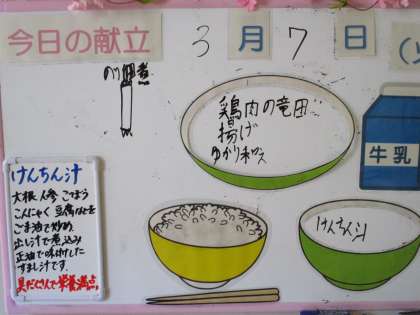 今日の献立 3月7日(火
のり佃煮
鶏肉の竜田
揚げ
ゆかり和え
牛乳
けんちん汁
けんちん汁
大根 人参 ごぼう
こんにゃく 豆腐などを
ごま油で炒め
出し汁で煮込み
正油で味付けした
すまし汁です。
具だくさんで栄養満点。